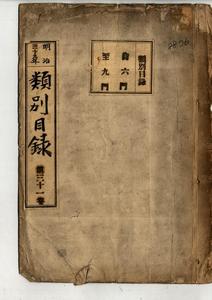 類別目録
自六門
至九門
明治
三十年
類別目録
第三十一巻